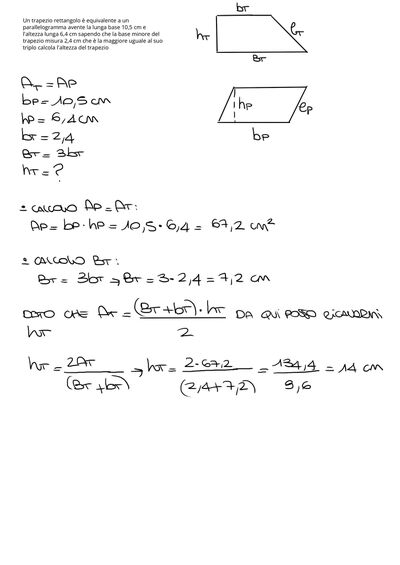 Un trapezio rettangolo è equivalente a un
parallelogramma avente la lunga base 10,5 cm e
l'altezza lunga 6,4 cm sapendo che la base minore del
trapezio misura 2,4 cm che è la maggiore uguale al suo
triplo calcola l'altezza del trapezio
bT
hT
lT
BT
hP
lP
bP
AT = AP
bP = 10,5 cm
hP = 6,4 cm
bT = 2,4
BT = 3bT
hT = ?
= CALCOLO AP = AT:
AP = bP · hP = 10,5 · 6,4 = 67,2 cm²
= CALCOLO BT:
BT = 3bT → BT = 3 · 2,4 = 7,2 cm
DATO CHE AT = (BT + bT) · hT / 2 DA QUI POSSO RICAVARMI
hT
hT = 2AT / (BT + bT) → hT = 2·67,2 / (2,4+7,2) = 134,4 / 9,6 = 14 cm